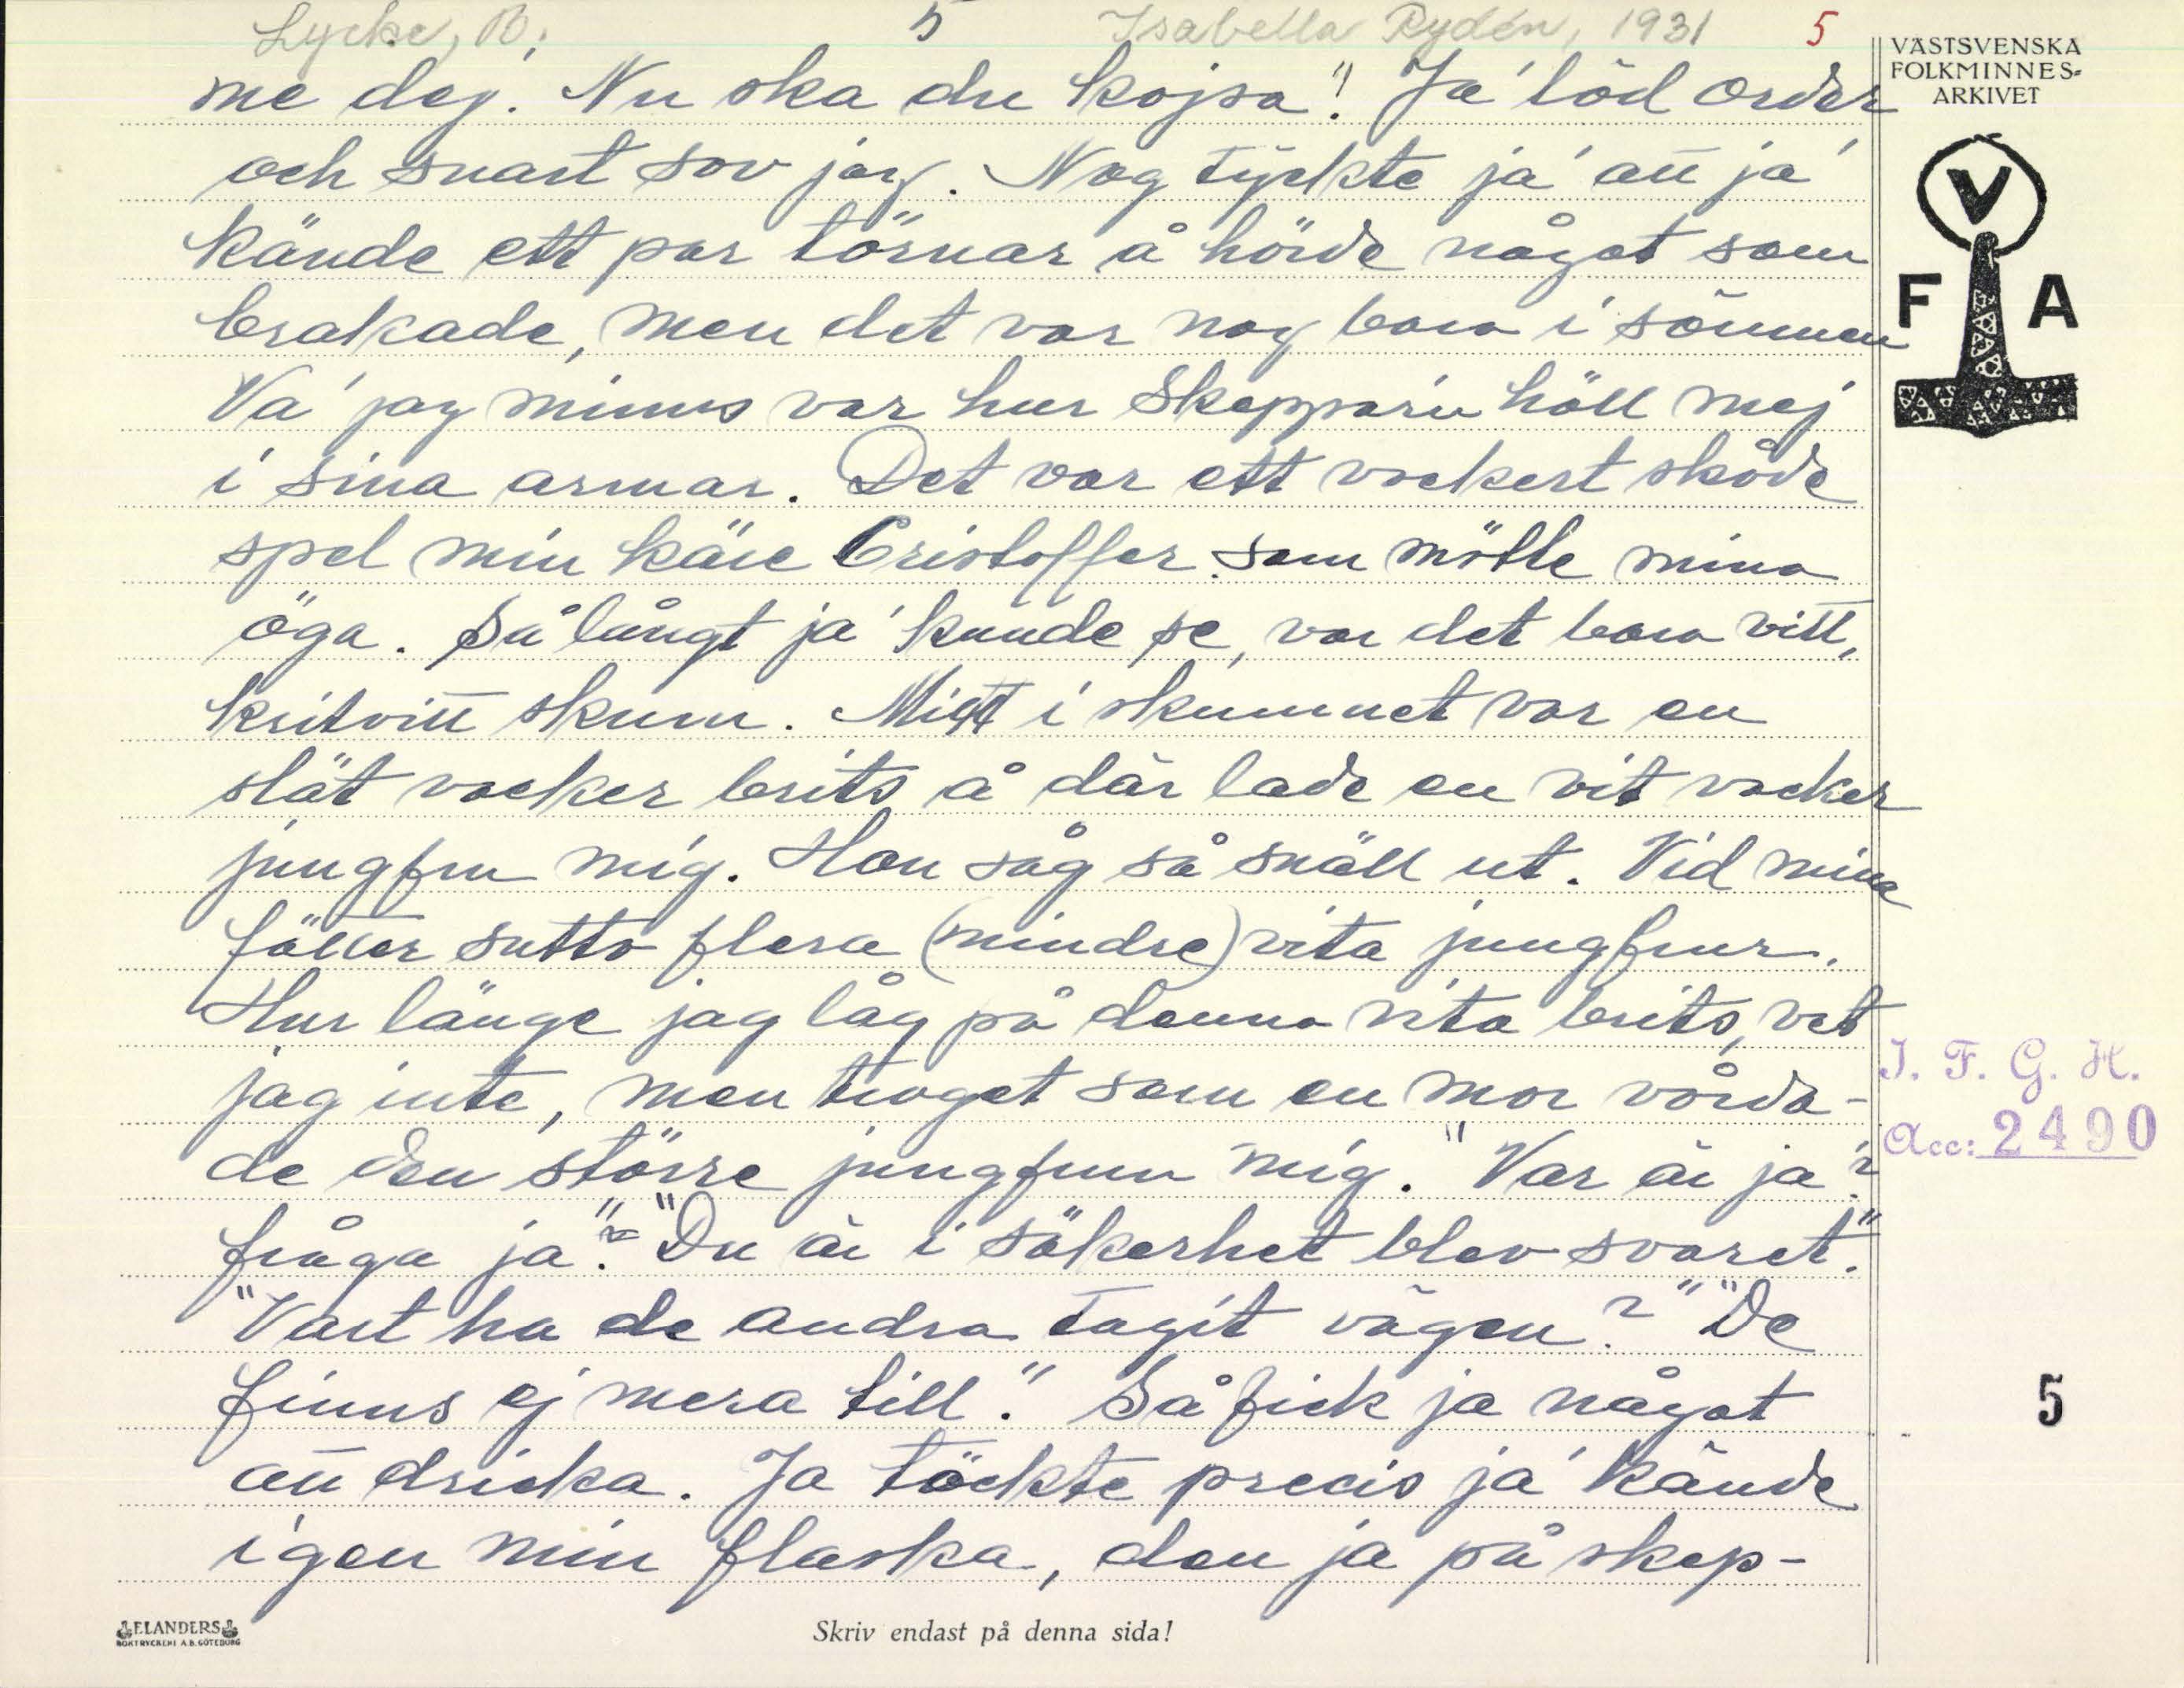 Lycke, B. 5 Isabella Rydén, 1931 5
VÄSTSVENSKA
FOLKMINNES-
ARKIVET
V
F A
me dej. Nu ska du kojsa". Ja' löd order
och snart sov jag. Nog tyckte ja' att ja'
kände ett par törnar å hörde något som
brakade, men det var nog bara i sömnen
Va' jag minns var hur Skepparn höll mej
i sina armar. Det var ett vackert skåde
spel min käre Cristoffer som mötte mina
öga. Så långt ja' kunde se, var det bara vitt,
kritvitt skum. Mitt i skummet var en
slät vacker brits å där lade en vit vacker
jungfru mig. Hon såg så snäll ut. Vid mina
fötter sutto flera (mindre) vita jungfrur.
Hur länge jag låg på denna vita brits, vet
jag inte, men troget som en mor vårda-
de den större jungfrun mig. "Var är ja?
fråga ja". "Du är i säkerhet blev svaret."
"Vart ha de andra tagit vägen?" "De
finns ej mera till." Så fick ja något
att dricka. Ja töckte precis ja' kände
igen min flaska, den ja på skep-
I. F. G. H.
Acc: 2490
5
ELANDERS
BOKTRYCKERI A.B. GÖTEBORG
Skriv endast på denna sida!